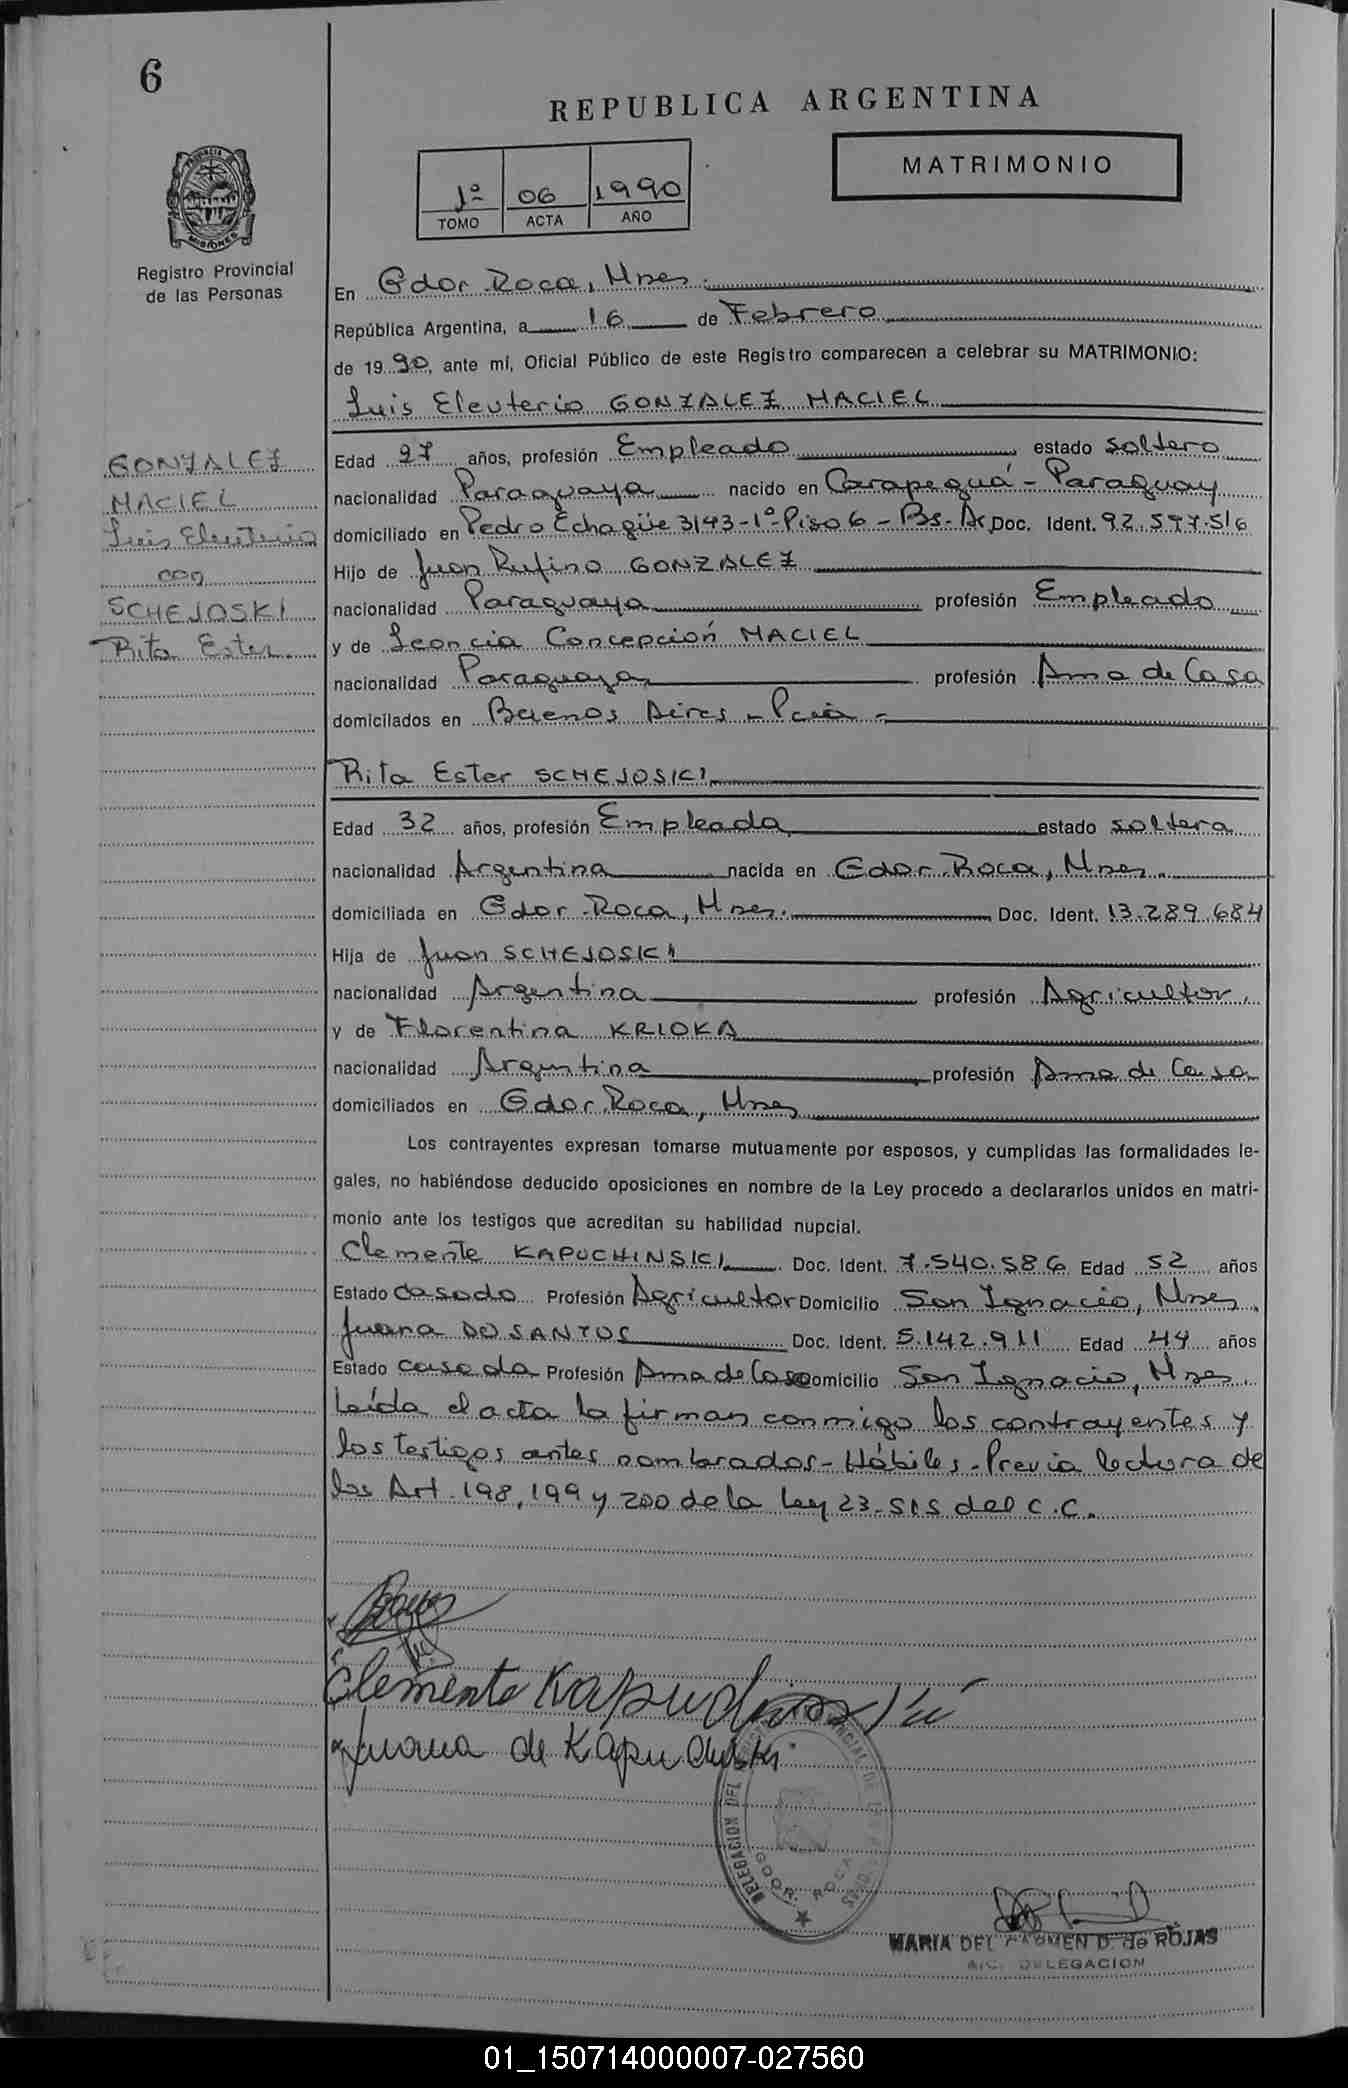 6
REPUBLICA ARGENTINA
MATRIMONIO
1º 06 1990
TOMO ACTA AÑO
PROVINCIA DE
MISIONES
Registro Provincial
de las Personas
En Gdor. Roca, Mnes.
República Argentina, a 16 de Febrero
de 1990, ante mí, Oficial Público de este Registro comparecen a celebrar su MATRIMONIO:
Luis Eleuterio GONZALEZ MACIEL
GONZALEZ
MACIEL
Luis Eleuterio
con
SCHEJOSKI
Rita Ester
Edad 27 años, profesión Empleado estado soltero
nacionalidad Paraguaya nacido en Carapeguá - Paraguay
domiciliado en Pedro Echagüe 3143-1º-Piso 6 - Bs. As. Doc. Ident. 92.597.516
Hijo de Juan Rufino GONZALEZ
nacionalidad Paraguaya profesión Empleado
y de Leoncia Concepción MACIEL
nacionalidad Paraguaya profesión Ama de Casa
domicilados en Buenos Aires - Pcia -
Rita Ester SCHEJOSKI
Edad 32 años, profesión Empleada estado soltera
nacionalidad Argentina nacida en Gdor. Roca, Mnes.
domiciliada en Gdor. Roca, Mnes. Doc. Ident. 13.289.684
Hija de Juan SCHEJOSKI
nacionalidad Argentina profesión Agricultor
y de Florentina KRIOKA
nacionalidad Argentina profesión Ama de Casa
domiciliados en Gdor. Roca, Mnes
Los contrayentes expresan tomarse mutuamente por esposos, y cumplidas las formalidades le-
gales, no habiéndose deducido oposiciones en nombre de la Ley procedo a declararlos unidos en matri-
monio ante los testigos que acreditan su habilidad nupcial.
Clemente KAPUCHINSKI Doc. Ident. 7.540.586 Edad 52 años
Estado Casado Profesión Agricultor Domicilio San Ignacio, Mnes.
Juana DO SANTOS Doc. Ident. 5.142.911 Edad 44 años
Estado casada Profesión Ama de Casa Domicilio San Ignacio, Mnes.
Leída el acta la firman conmigo los contrayentes y
los testigos antes nombrados - Hábiles - Previa lectura de
los Art. 198, 199 y 200 de la Ley 23.515 del C.C.
Clemente Kapuchinski
Juana de Kapuchinski
DELEGACION DEL
GDOR. ROCA
MARIA DEL CARMEN D. de ROJAS
A/C. DELEGACION
01_150714000007-027560